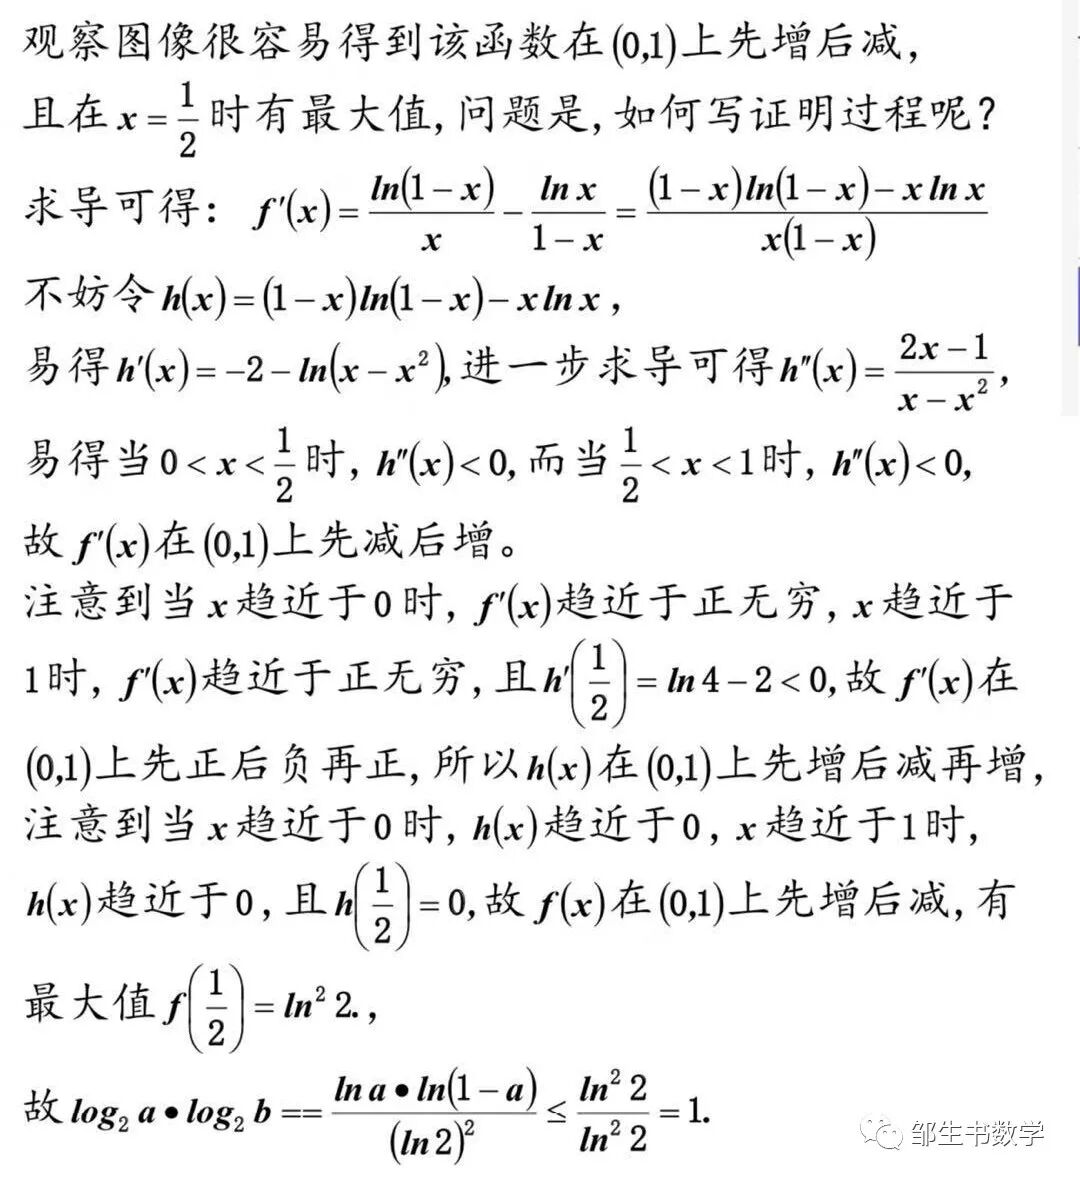 观察图像很容易得到该函数在(0,1)上先增后减,
且在 x = 1/2 时有最大值, 问题是, 如何写证明过程呢?
求导可得: f′(x) = ln(1 − x)/x − ln x/(1 − x) = ((1 − x)ln(1 − x) − x ln x)/(x(1 − x))
不妨令 h(x) = (1 − x)ln(1 − x) − x ln x ,
易得 h′(x) = −2 − ln(x − x²), 进一步求导可得 h″(x) = (2x − 1)/(x − x²) ,
易得当 0 < x < 1/2 时, h″(x) < 0, 而当 1/2 < x < 1 时, h″(x) < 0,
故 f′(x) 在 (0,1) 上先减后增。
注意到当 x 趋近于 0 时, f′(x) 趋近于正无穷, x 趋近于
1 时, f′(x) 趋近于正无穷, 且 h′(1/2) = ln 4 − 2 < 0, 故 f′(x) 在
(0,1) 上先正后负再正, 所以 h(x) 在 (0,1) 上先增后减再增,
注意到当 x 趋近于 0 时, h(x) 趋近于 0 , x 趋近于 1 时,
h(x) 趋近于 0 , 且 h(1/2) = 0, 故 f(x) 在 (0,1) 上先增后减, 有
最大值 f(1/2) = ln² 2. ,
故 log₂ a • log₂ b == (ln a • ln(1 − a))/(ln 2)² ≤ ln² 2/ln² 2 = 1.
邹生书数学